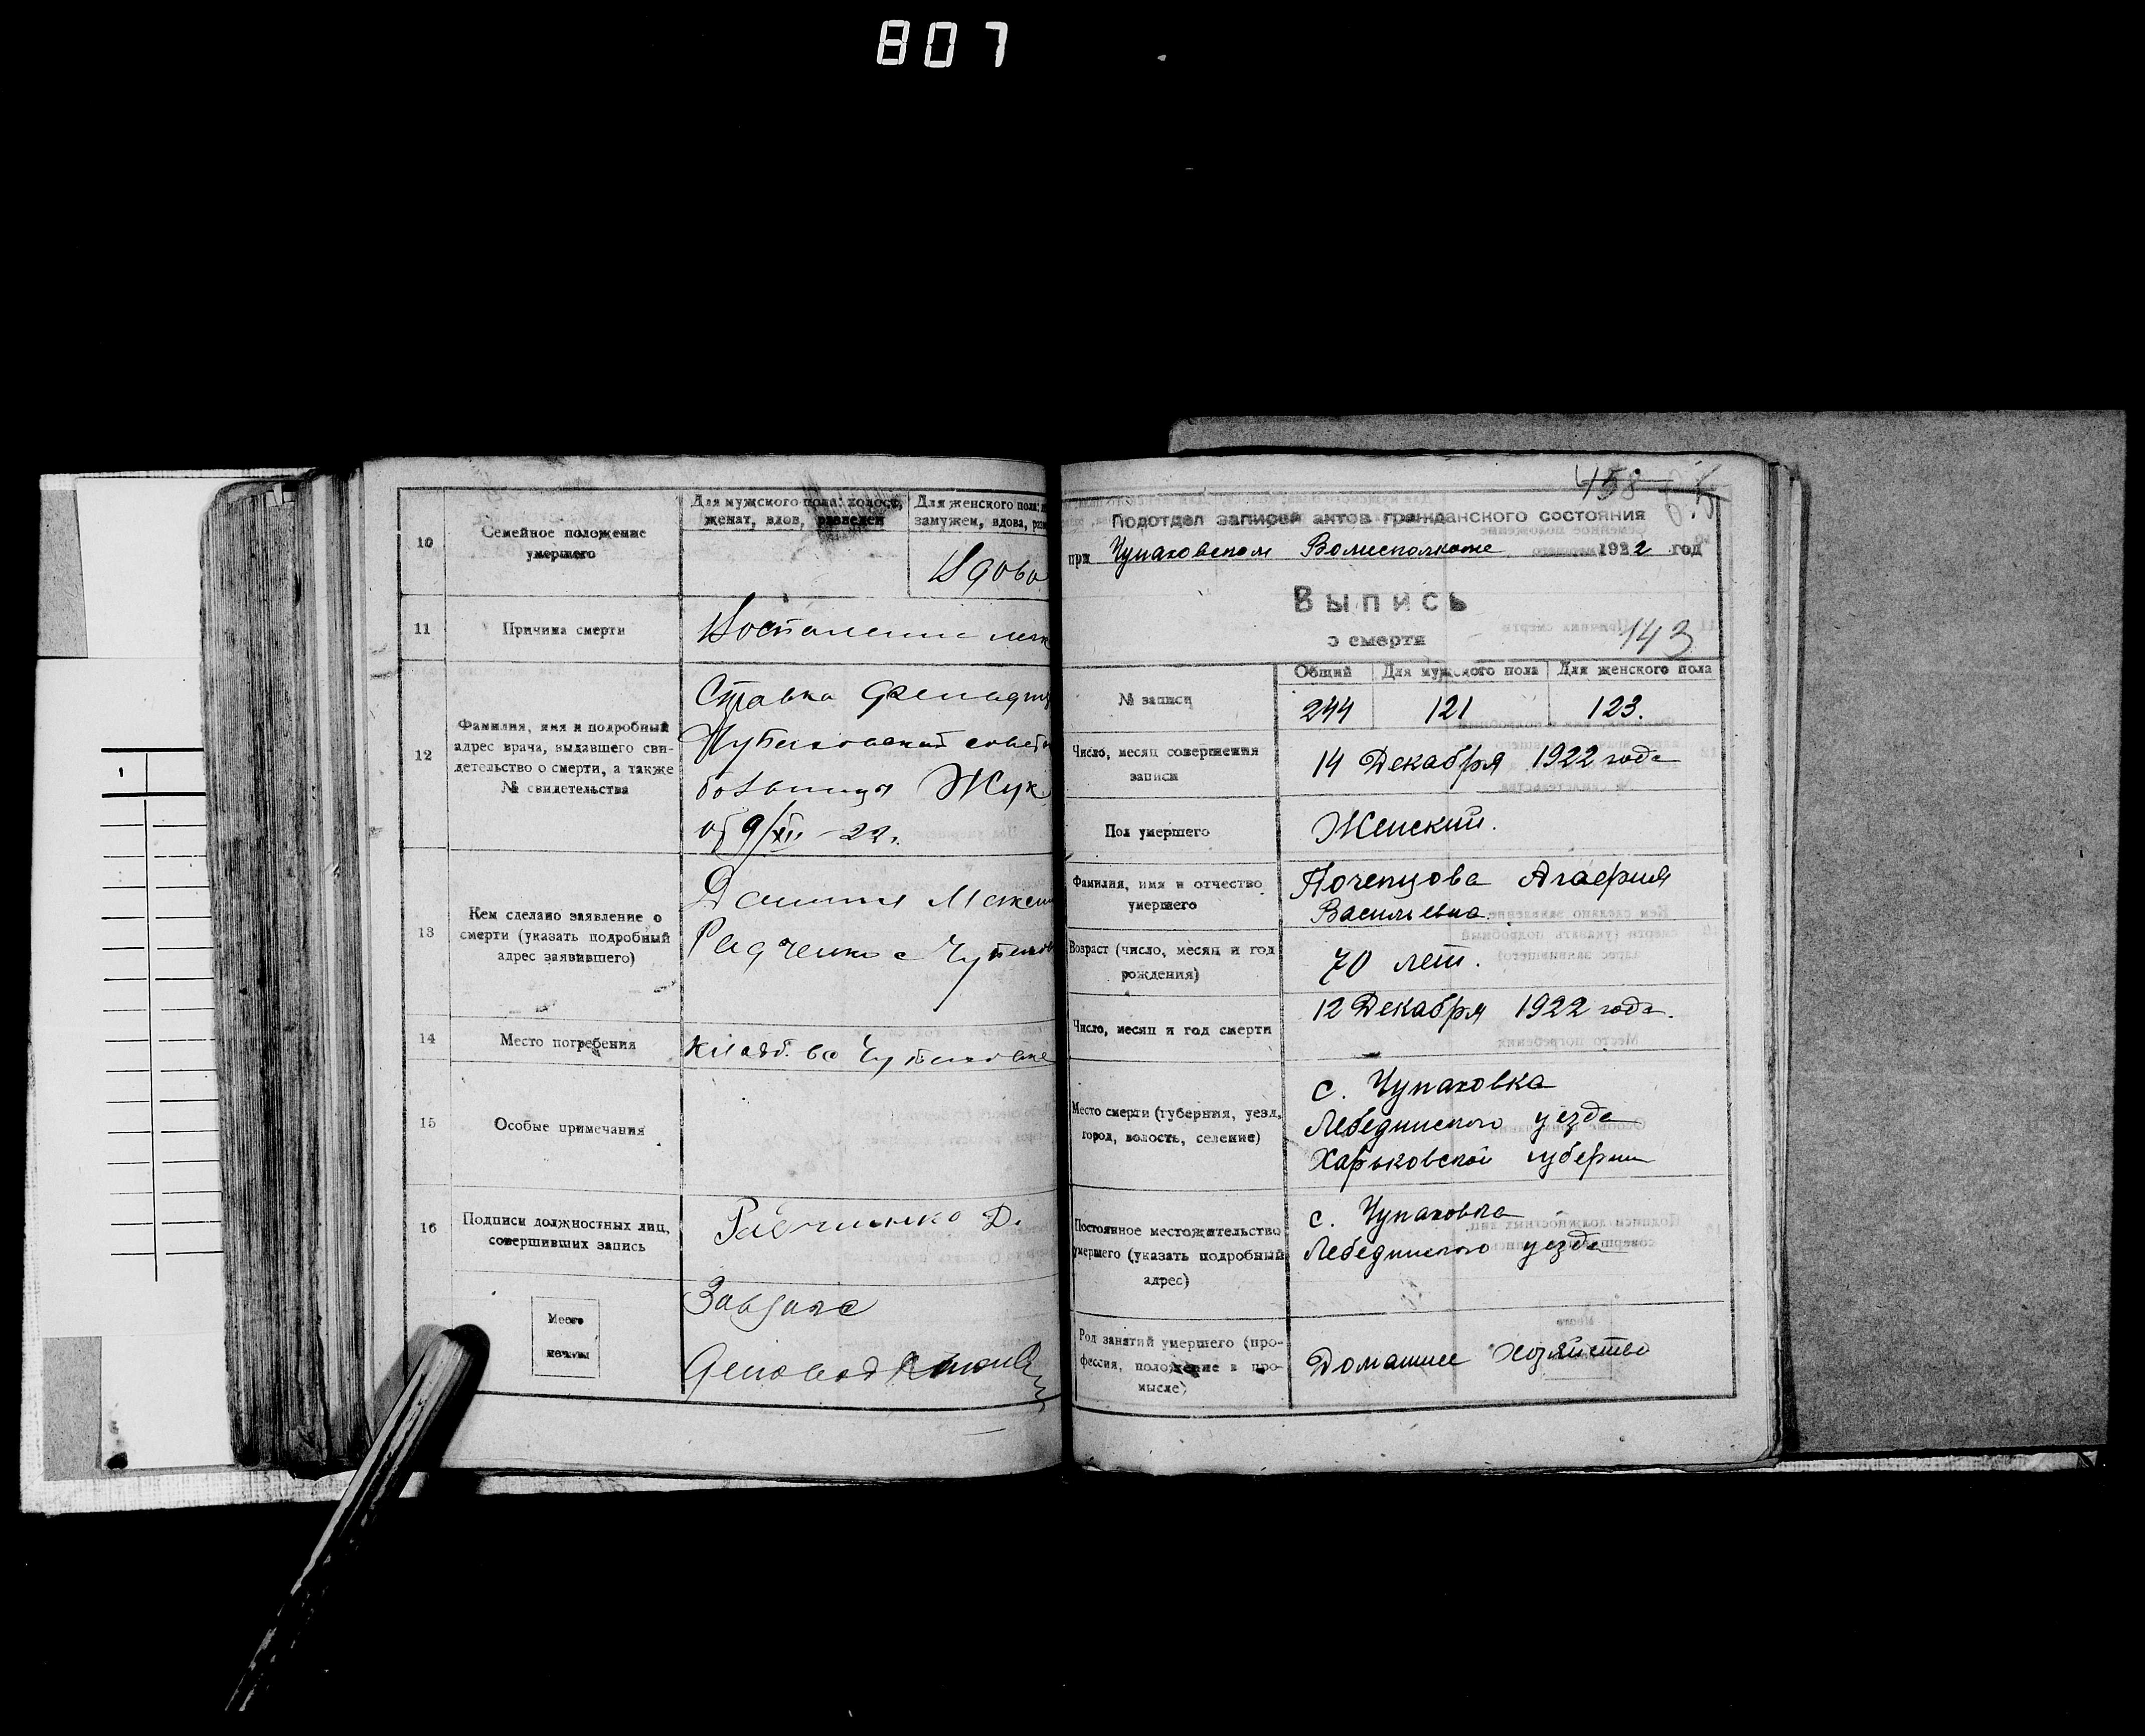 807
10
Семейное положение
умершего
Для мужского пола: холост,
женат, вдов, разведен
Для женского пола:
замужем, вдова,
Вдова
11
Причина смерти
Воспаление легк
12
Фамилия, имя и подробный
адрес врача, выдавшего сви-
детельство о смерти, а также
№ свидетельства
Справка
больницы Жук
от 9/XII-22г.
13
Кем сделано заявление о
смерти (указать подробный
адрес заявившего)
Радченко с
14
Место погребения
кладб. в с
15
Особые примечания
16
Подписи должностных лиц,
совершивших запись
Радченко Д.
Место
печати
Завзагс
458
Подотдел записей актов гражданского состояния
при Чупаховском Волисполкоме 1922 год
Выпись
о смерти
143
№ записи
Общий
Для мужского пола
Для женского пола
244
121
123.
Число, месяц совершения
записи
14 Декабря 1922 года
Пол умершего
Женский.
Фамилия, имя и отчество
умершего
Почепцова Агафия
Васильевна.
Возраст (число, месяц и год
рождения)
70 лет.
Число, месяц и год смерти
12 Декабря 1922 года.
Место смерти (губерния, уезд,
город, волость, селение)
с. Чупаховка
Лебединского уезда
Харьковской губернии
Постоянное местожительство
умершего (указать подробный
адрес)
с. Чупаховка
Лебединского уезда
Род занятий умершего (про-
фессия, положение в про-
мысле)
Домашнее хозяйство